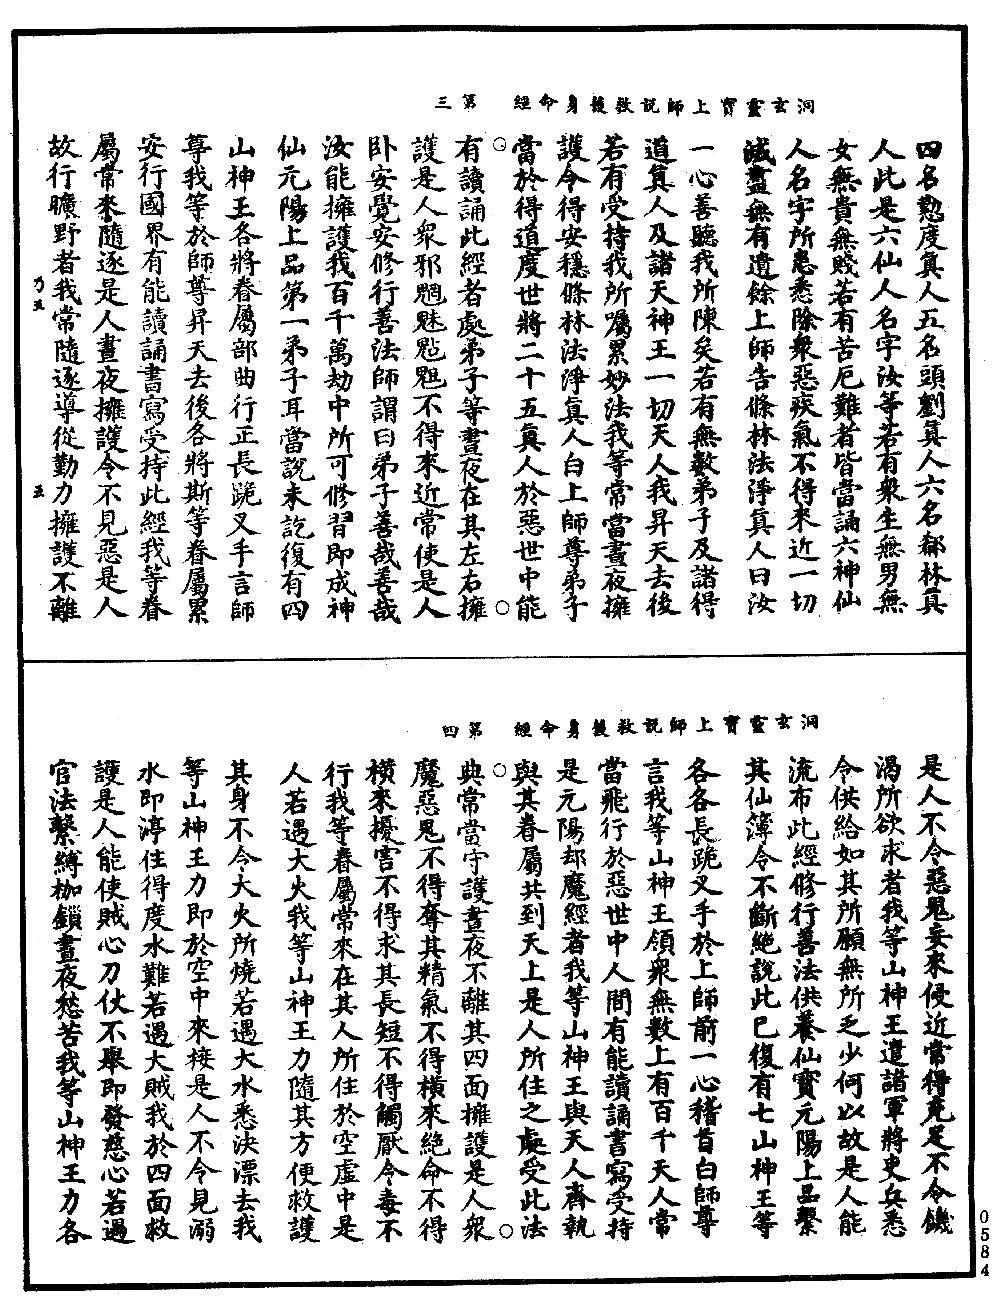 洞玄靈寶上師說救護身命經　第三
四名懃度真人五名頭劉真人六名郗林真
人此是六仙人名字汝等若有衆生無男無
女無貴無賤若有苦厄難者皆當誦六神仙
人名字所患悉除衆惡疾氣不得來近一切
滅盡無有遺餘上師告條林法淨真人曰汝
一心善聽我所陳矣若有無數弟子及諸得
道真人及諸天神王一切天人我昇天去後
若有受持我所囑累妙法我等常當晝夜擁
護令得安穩條林法淨真人白上師尊弟子
當於得道度世將二十五真人於惡世中能
有讀誦此經者處弟子等晝夜在其左右擁
護是人衆邪魍魅魁魋不得來近常使是人
卧安覺安修行善法師謂曰弟子善哉善哉
汝能擁護我百千萬劫中所可修習即成神
仙元陽上品第一弟子耳當說未訖復有四
山神王各將眷屬部曲行正長跪叉手言師
尊我等於師尊昇天去後各將斯等眷屬累
安行國界有能讀誦書寫受持此經我等眷
屬常來隨逐是人晝夜擁護令不見惡是人
故行曠野者我常隨逐導從勤力擁護不離
乃五　五
洞玄靈寶上師說救護身命經　第四
是人不令惡鬼妄來侵近常得充足不令饑
渴所欲求者我等山神王遣諸軍將吏兵悉
令供給如其所願無所乏少何以故是人能
流布此經修行善法供養仙寶元陽上品繫
其仙簿令不斷絕說此已復有七山神王等
各各長跪叉手於上師前一心稽首白師尊
言我等山神王領衆無數上有百千天人常
當飛行於惡世中人間有能讀誦書寫受持
是元陽却魔經者我等山神王與天人齊執
與其眷屬共到天上是人所住之處受此法
典常當守護晝夜不離其四面擁護是人衆
魔惡鬼不得奪其精氣不得橫來絕命不得
橫來擾害不得求其長短不得觸厭令毒不
行我等眷屬常來在其人所住於空虛中是
人若遇大火我等山神王力隨其方便救護
其身不令大火所燒若遇大水悉決漂去我
等山神王力即於空中來接是人不令見溺
水即渟住得度水難若遇大賊我於四面救
護是人能使賊心刀仗不舉即發慈心若遇
官法繫縛枷鎖晝夜愁苦我等山神王力各
0584